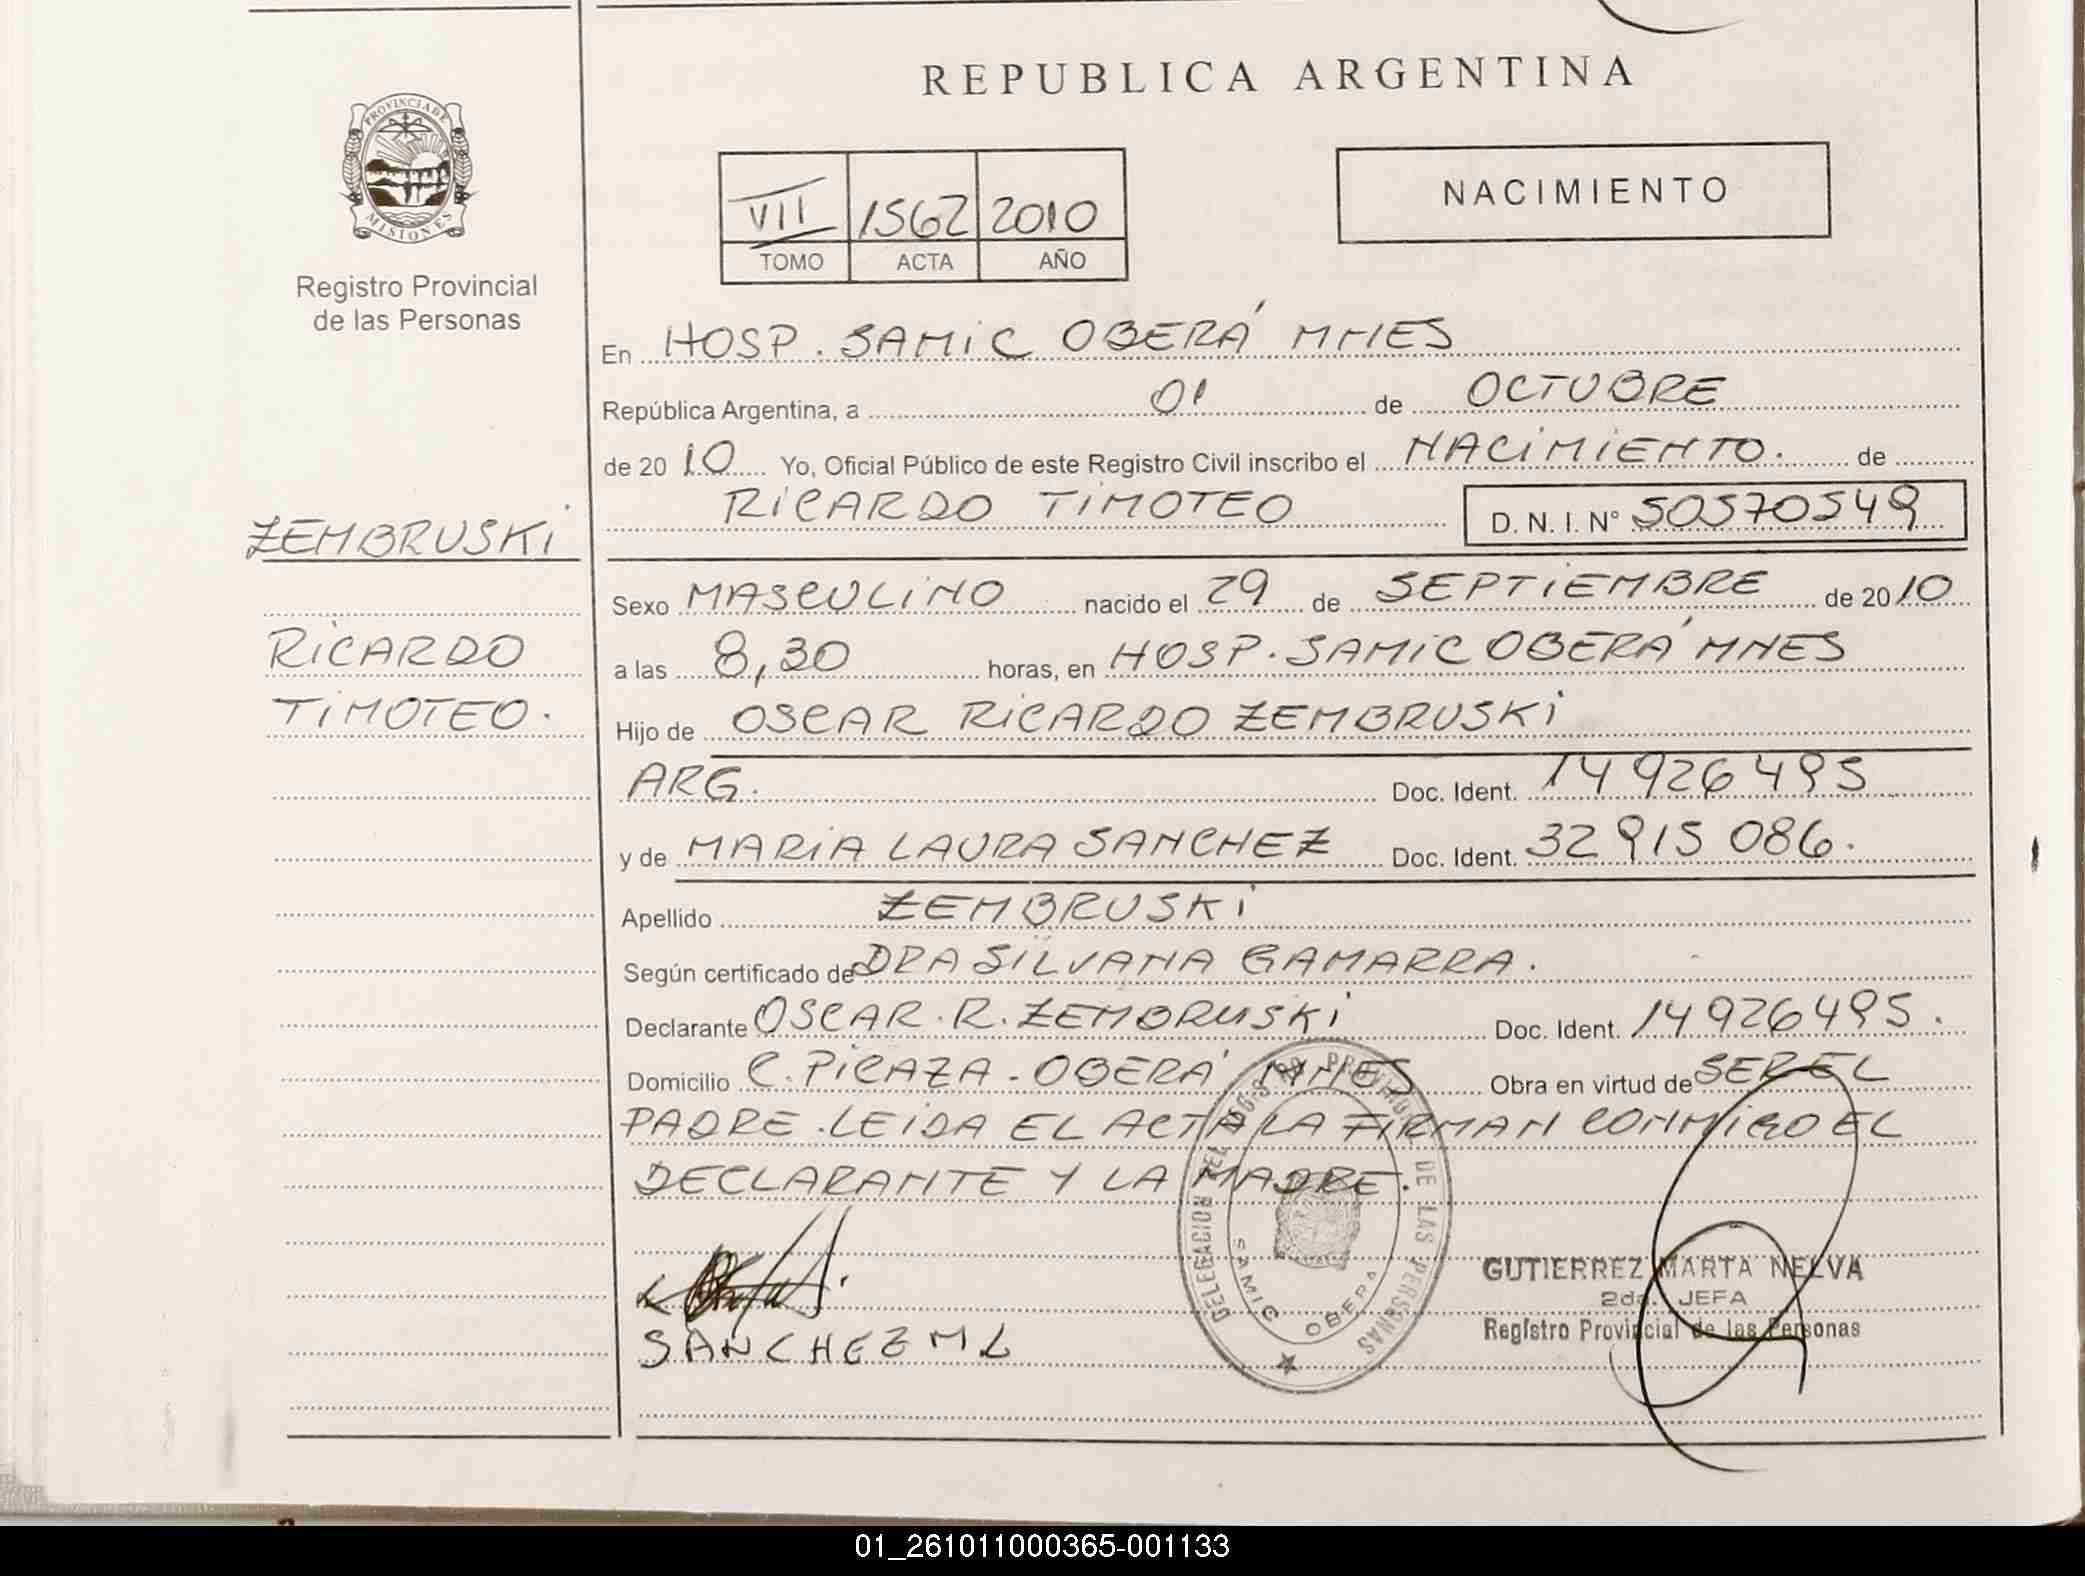 REPUBLICA ARGENTINA
PROVINCIA DE MISIONES
Registro Provincial
de las Personas
VII 1562 2010
TOMO ACTA AÑO
NACIMIENTO
En HOSP. SAMIC OBERÁ MNES
República Argentina, a 01 de OCTUBRE
de 2010 Yo, Oficial Público de este Registro Civil inscribo el NACIMIENTO. de
RICARDO TIMOTEO D. N. I. N° 50570549
ZEMBRUSKI
RICARDO
TIMOTEO.
Sexo MASCULINO nacido el 29 de SEPTIEMBRE de 2010
a las 8,30 horas, en HOSP. SAMIC OBERÁ MNES
Hijo de OSCAR RICARDO ZEMBRUSKI
ARG. Doc. Ident. 14926495
y de MARIA LAURA SANCHEZ Doc. Ident. 32915086.
Apellido ZEMBRUSKI
Según certificado de DRA SILVANA GAMARRA.
Declarante OSCAR. R. ZEMBRUSKI Doc. Ident. 14926495.
Domicilio C. PICAZA - OBERÁ MNES Obra en virtud de SER EL
PADRE. LEIDA EL ACTA LA FIRMAN CONMIGO EL
DECLARANTE Y LA MADRE.
SANCHEZ M L
DE LAS PERSONAS
SAMIC OBERA
GUTIERREZ MARTA NELVA
2da. JEFA
Registro Provincial de las Personas
01_261011000365-001133